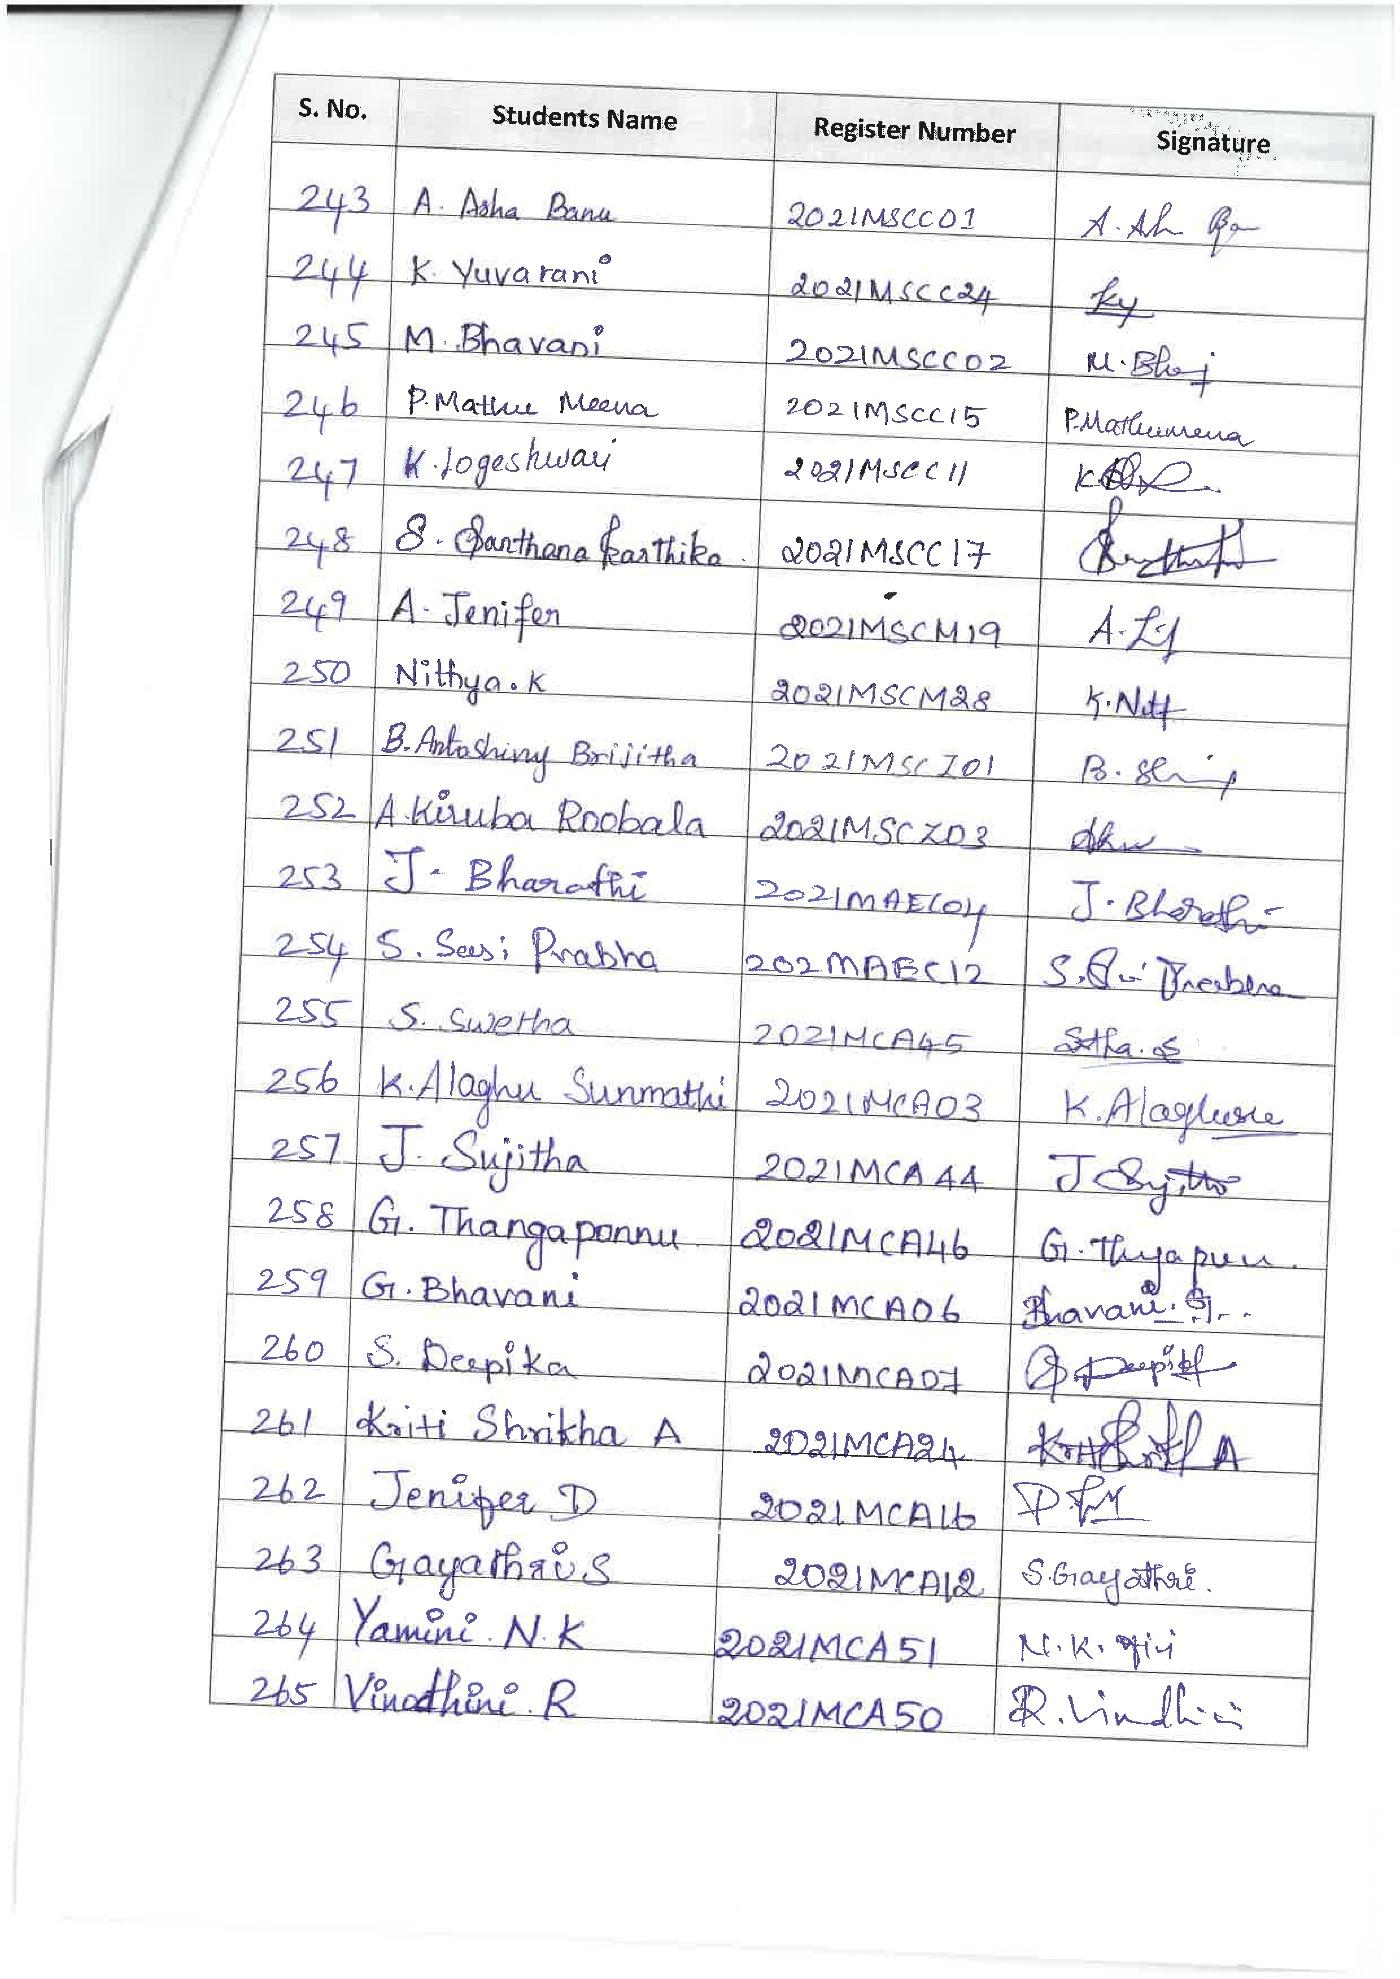 S. No. Students Name Register Number Signature
243 A. Asha Banu 2021MSCC01 A. Ah
244 K. Yuvarani 2021MSCC24 Ky
245 M. Bhavani 2021MSCC02 M. Bhaj
246 P. Mathu Meena 2021MSCC15 P.Mathumeena
247 K. Jogeshwari 2021MSCC11
248 S. Santhana Karthika. 2021MSCC17
249 A. Jenifer 2021MSCM19
250 Nithya. K 2021MSCM28 K. Nitt
251 B. Antashiny Brijitha 2021MSCZ01
252 A. Kiruba Roobala 2021MSCZ03
253 J. Bharathi 2021MAEC04 J. Bharathi
254 S. Seesi Prabha 202MAEC12
255 S. Swetha 2021MCA45
256 K. Alaghu Sunmathi 2021MCA03
257 J. Sujitha 2021MCA44 J Sujitha
258 G. Thangaponnu 2021MCA46
259 G. Bhavani 2021MCA06 Bhavani. G..
260 S. Deepika 2021MCA07
261 Kriti Shrikha A 2021MCA24
262 Jenifer D 2021MCA16
263 Gayathri S 2021MCA12 S. Gayathri.
264 Yamini. N. K 2021MCA51
265 Vinodhini. R 2021MCA50